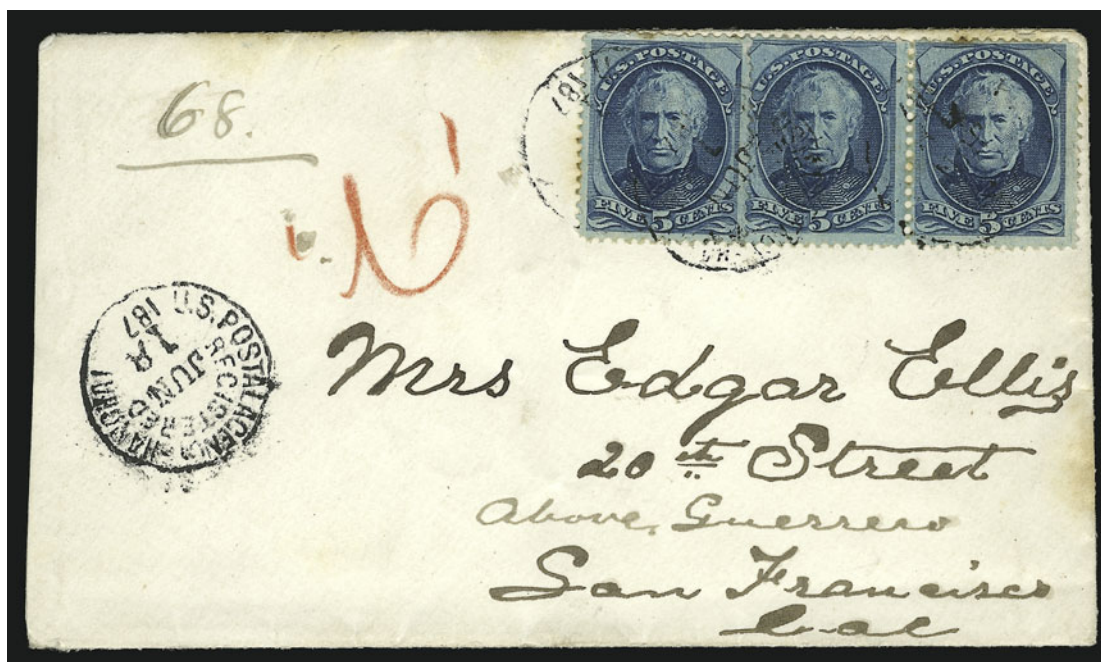 68.
U.S. POSTAGE
FIVE 5 CENTS
U.S. POSTAGE
FIVE 5 CENTS
U.S. POSTAGE
FIVE 5 CENTS
187
U.S. POSTAL AGENCY SHANGHAI
REGISTERED
JUN
187
Mrs Edgar Ellis
20th Street
Above, Guerrero
San Francisco
Cal